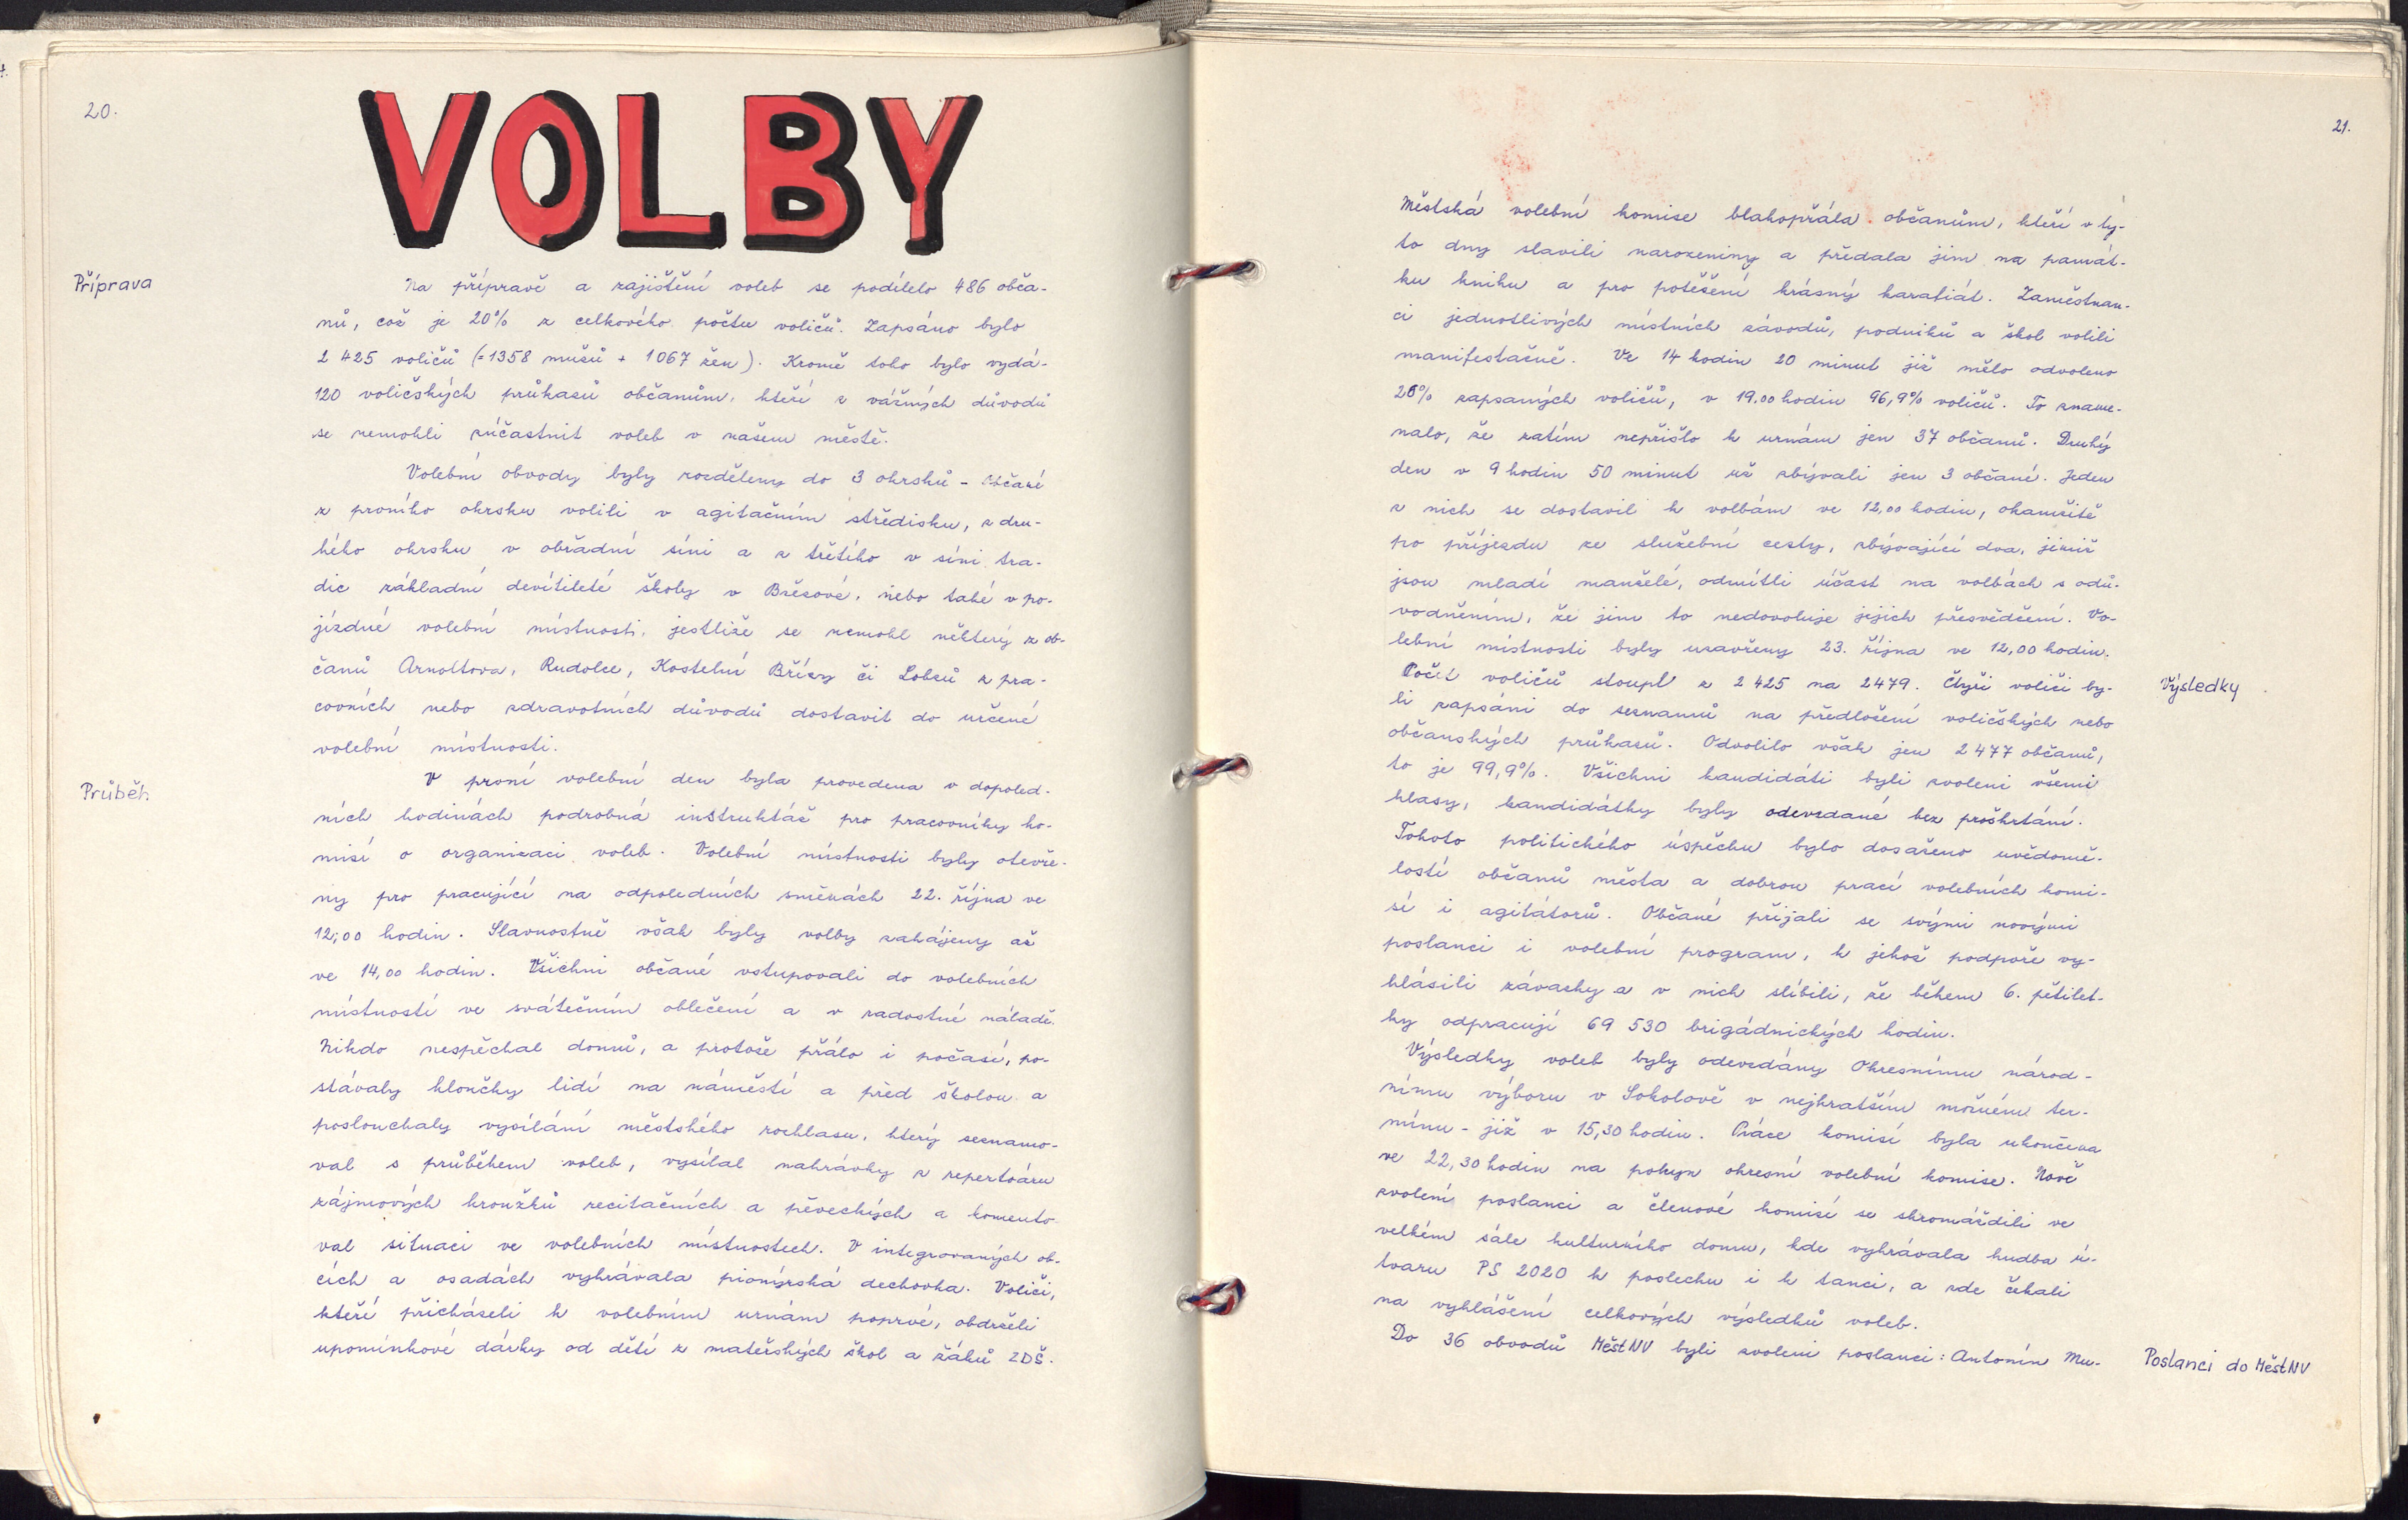 20.
VOLBY
Příprava
Na přípravě a zajištění voleb se podílelo 486 obča-
nů, což je 20% z celkového počtu voličů. Zapsáno bylo
2 425 voličů (=1358 mužů + 1067 žen). Kromě toho bylo vydá-
120 voličských průkazů občanům, kteří z vážných důvodů
se nemohli zúčastnit voleb v našem městě.
Volební obvody byly rozděleny do 3 okrsků - Občané
z prvního okrsku volili v agitačním středisku, z dru-
hého okrsku v obřadní síni a z třetího v síni tra-
dic základní devítileté školy v Březové, nebo také v po-
jízdné volební místnosti, jestliže se nemohl některý z ob-
čanů Arnoltova, Rudolce, Kostelní Břízy či Lobzů z pra-
covních nebo zdravotních důvodů dostavit do určené
volební místnosti.
Průběh
V první volební den byla provedena v dopoled-
ních hodinách podrobná instruktáž pro pracovníky ko-
misí o organizaci voleb. Volební místnosti byly otevře-
ny pro pracující na odpoledních směnách 22. října ve
12,00 hodin. Slavnostně však byly volby zahájeny až
ve 14,00 hodin. Všichni občané vstupovali do volebních
místností ve svátečním oblečení a v radostné náladě.
Nikdo nespěchal domů, a protože přálo i počasí, po-
stávaly hloučky lidí na náměstí a před školou a
poslouchaly vysílání městského rozhlasu, který seznamo-
val s průběhem voleb, vysílal nahrávky z repertoáru
zájmových kroužků recitačních a pěveckých a komento-
val situaci ve volebních místnostech. V integrovaných ob-
cích a osadách vyhrávala pionýrská dechovka. Voliči,
kteří přicházeli k volebním urnám poprvé, obdrželi
upomínkové dárky od dětí z mateřských škol a žáků ZDŠ.
21.
Městská volební komise blahopřála občanům, kteří v ty-
to dny slavili narozeniny a předala jim na památ-
ku knihu a pro potěšení krásný karafiát. Zaměstnan-
ci jednotlivých místních závodů, podniků a škol volili
manifestačně. Ve 14 hodin 20 minut již mělo odvoleno
26% zapsaných voličů, v 19.00 hodin 96,9% voličů. To zname-
nalo, že zatím nepřišlo k urnám jen 37 občanů. Druhý
den v 9 hodin 50 minut už zbývali jen 3 občané. Jeden
z nich se dostavil k volbám ve 12,00 hodin, okamžitě
po příjezdu ze služební cesty, zbývající dva, jimiž
jsou mladí manželé, odmítli účast na volbách s odů-
vodněním, že jim to nedovoluje jejich přesvědčení. Vo-
lební místnosti byly uzavřeny 23. října ve 12,00 hodin.
Výsledky
Počet voličů stoupl z 2 425 na 2479. Čtyři voliči by-
li zapsáni do seznamů na předložení voličských nebo
občanských průkazů. Odvolilo však jen 2 477 občanů,
to je 99,9%. Všichni kandidáti byli zvoleni všemi
hlasy, kandidátky byly odevzdané bez proškrtání.
Tohoto politického úspěchu bylo dosaženo uvědomě-
lostí občanů města a dobrou prací volebních komi-
sí i agitátorů. Občané přijali se svými novými
poslanci i volební program, k jehož podpoře vy-
hlásili závazky a v nich slíbili, že během 6. pětilet-
ky odpracují 69 530 brigádnických hodin.
Výsledky voleb byly odevzdány Okresnímu národ-
nímu výboru v Sokolově v nejkratším možném ter-
mínu - již v 15,30 hodin. Práce komisí byla ukončena
ve 22,30 hodin na pokyn okresní volební komise. Nově
zvolení poslanci a členové komisí se shromáždili ve
velkém sále kulturního domu, kde vyhrávala hudba ú-
tvaru PS 2020 k poslechu i k tanci, a zde čekali
na vyhlášení celkových výsledků voleb.
Do 36 obvodů MěstNV byli zvoleni poslanci: Antonín Mu-
Poslanci do MěstNV